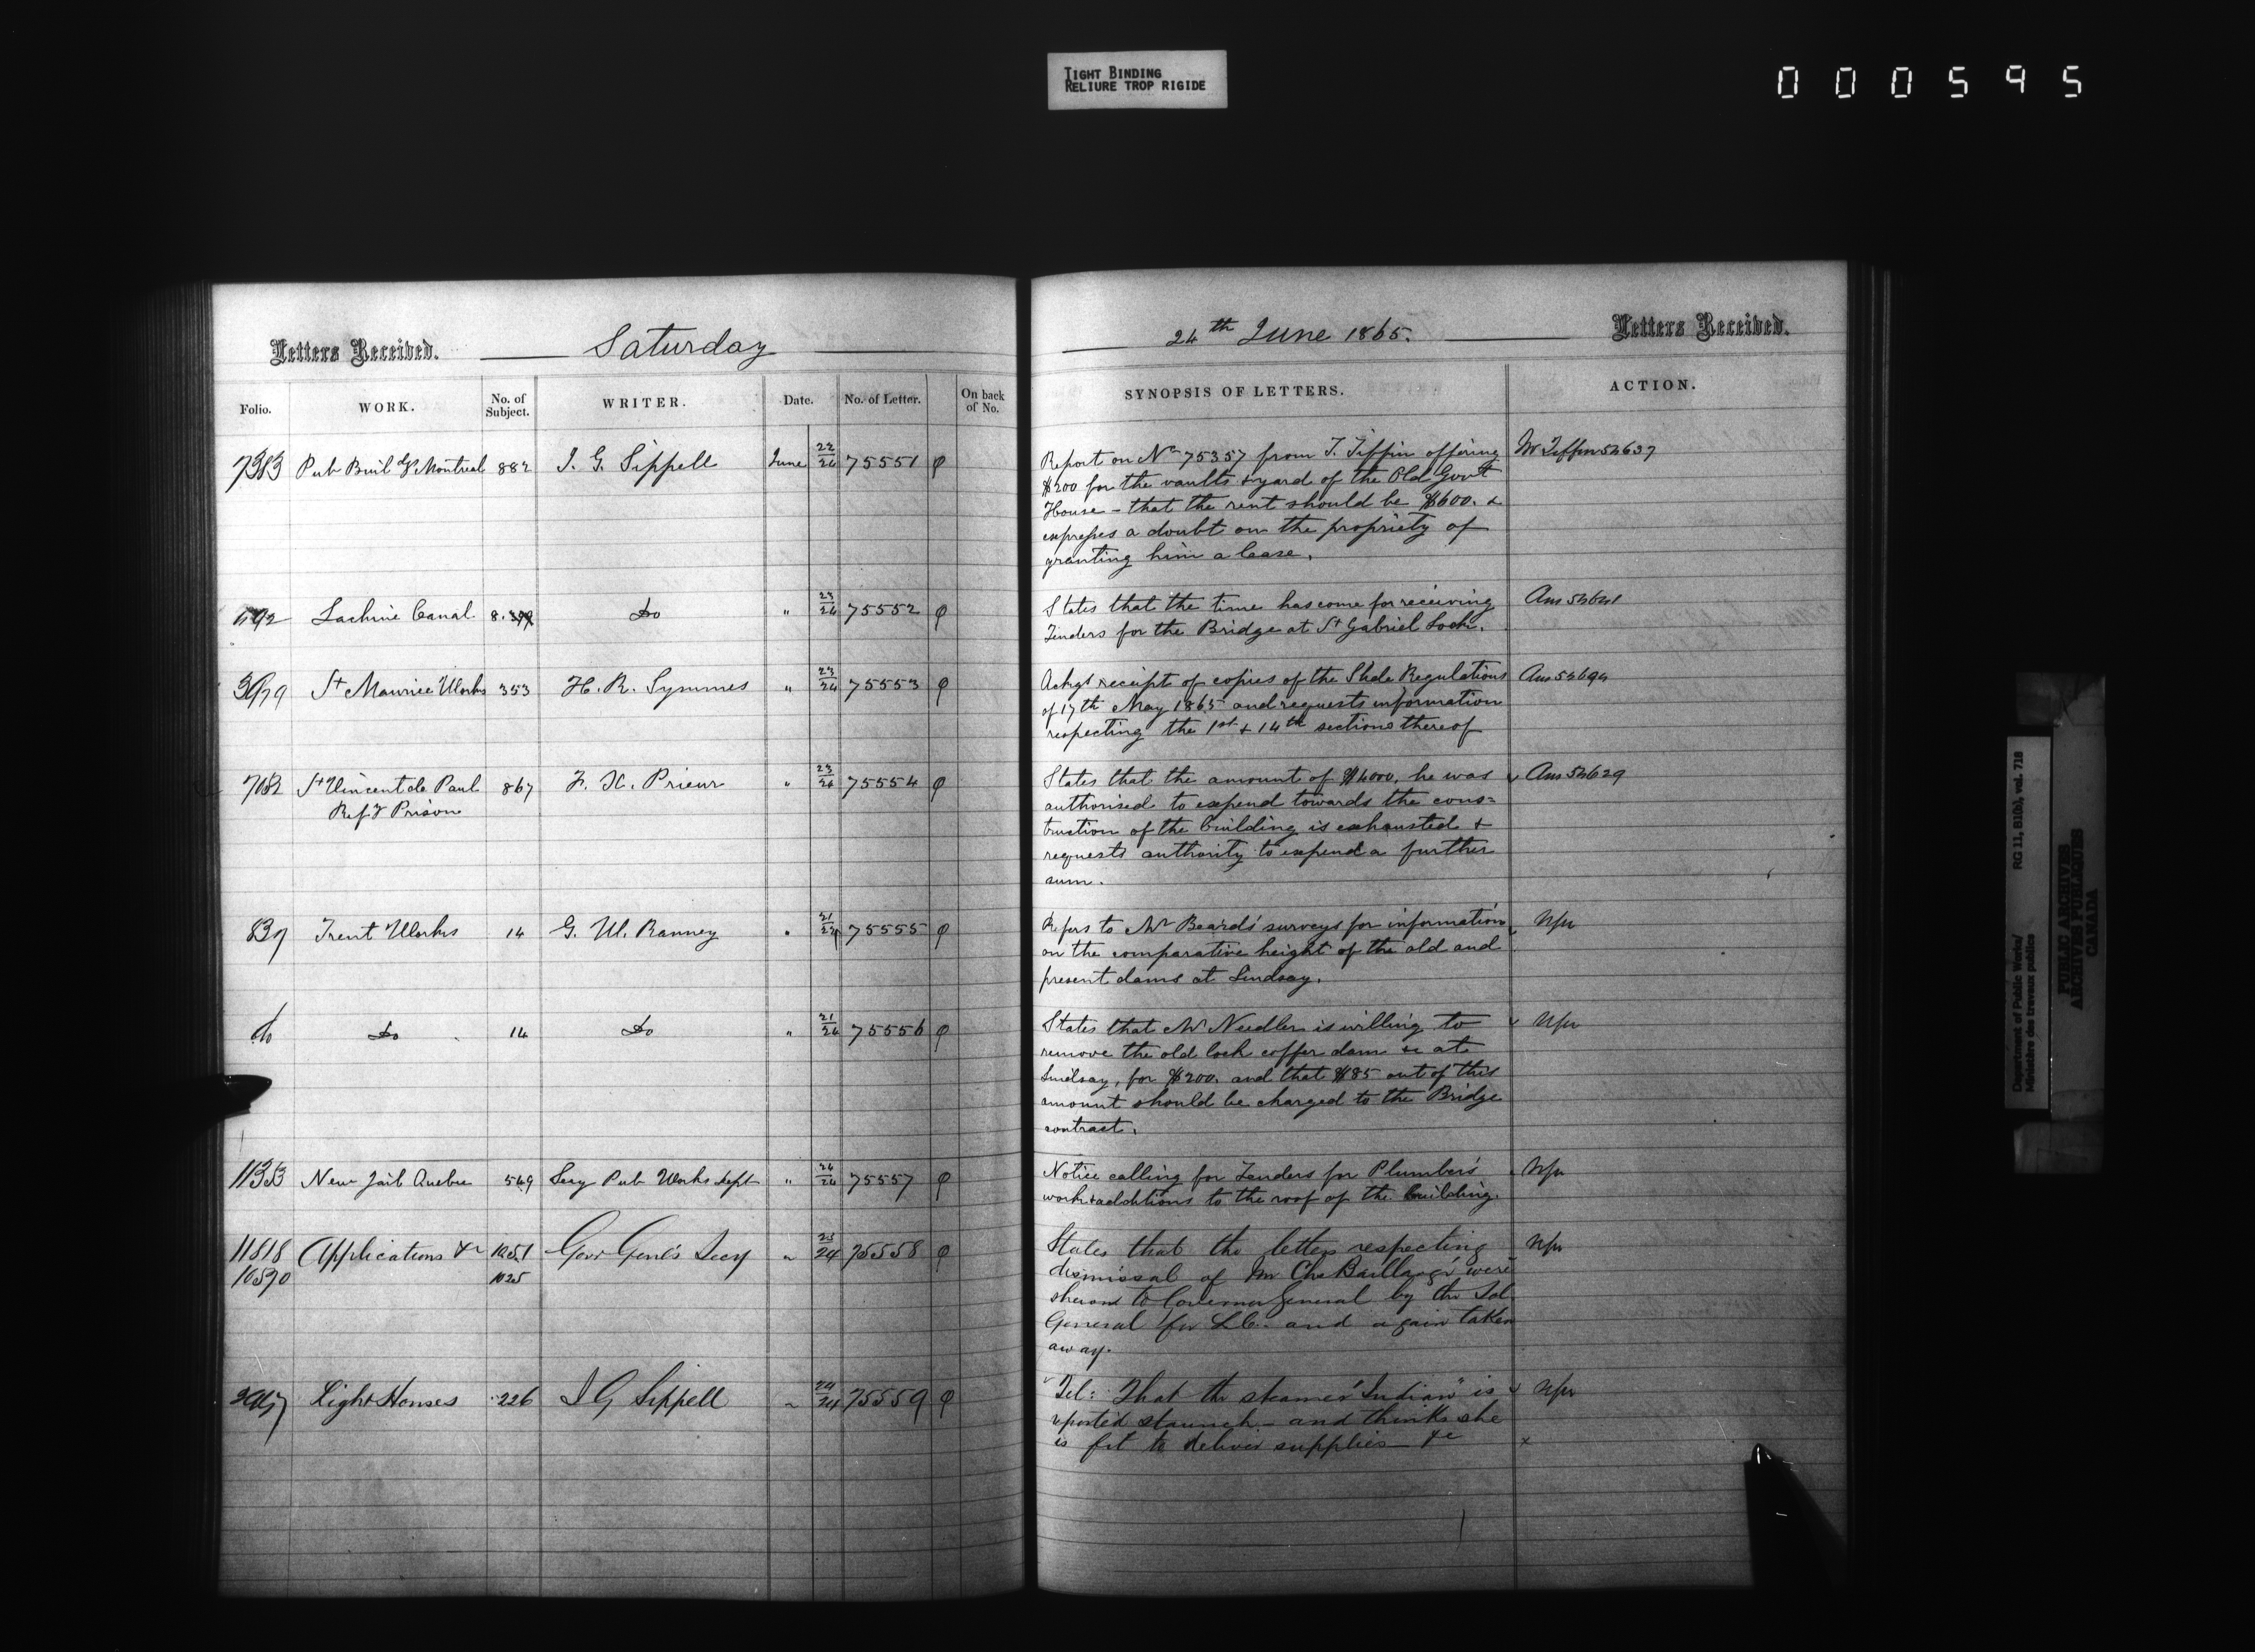 TIGHT BINDING
RELIURE TROP RIGIDE
000595
Letters Received.
Saturday
Folio.
WORK.
No. of Subject.
WRITER.
Date.
No. of Letter.
On back of No.
7383 Pub Buildgs Montreal 882 J. G. Sippell June 22/24 75551 φ
Lachine Canal 8. Do " 23/24 75552 φ
St Maurice Works 353 H. R. Symmes " 23/24 75553 φ
St Vincent de Paul 867 F. X. Prieur " 23/24 75554 φ
Refy Prison
Trent Works 14 G. W. Ranney " 21/24 75555 φ
do Do 14 Do " 21/24 75556 φ
New Jail Quebec 549 Secy Pub Works dept " 24/24 75557 φ
Applications &c 1051 Govr Genl's Secy " 23/24 75558 φ
1025
Light Houses 226 J G Sippell " 24/24 75559 φ
24th June 1865.
Letters Received.
SYNOPSIS OF LETTERS.
ACTION.
Report on No 75357 from T. Tiffin offering
$200 for the vaults & yard of the Old Govt
House - that the rent should be $600. &
expresses a doubt on the propriety of
granting him a lease.
Mr Tiffin 52637
States that the time has come for receiving
Tenders for the Bridge at St Gabriel Lock.
Ans 52641
Ackgs receipt of copies of the Slide Regulations
of 17th May 1865 and requests information
respecting the 1st & 14th sections thereof
Ans 52694
States that the amount of $4000. he was
authorised to expend towards the cons=
truction of the building is exhausted &
requests authority to expend a further
sum.
Ans 52629
Refers to Mr Beard's surveys for information
on the comparative height of the old and
present dams at Lindsay.
Nfu
States that Mr Needler is willing to
remove the old lock coffer dam &c at
Lindsay, for $200. and that $85 out of this
amount should be charged to the Bridge
contract.
Nfu
Notice calling for Tenders for Plumbers
work & additions to the roof of the building.
Nfu
States that the letters respecting
dismissal of Mr Chs Baillargé were
shewn to Governor General by the Sol
General for L.C. and again taken
away.
Nfu
Tel: That the steamer "Indian" is
reported staunch - and thinks she
is fit to deliver supplies &c
Nfu
x
Department of Public Works/ RG 11, B1(b), vol. 718
Ministère des travaux publics
PUBLIC ARCHIVES
ARCHIVES PUBLIQUES
CANADA